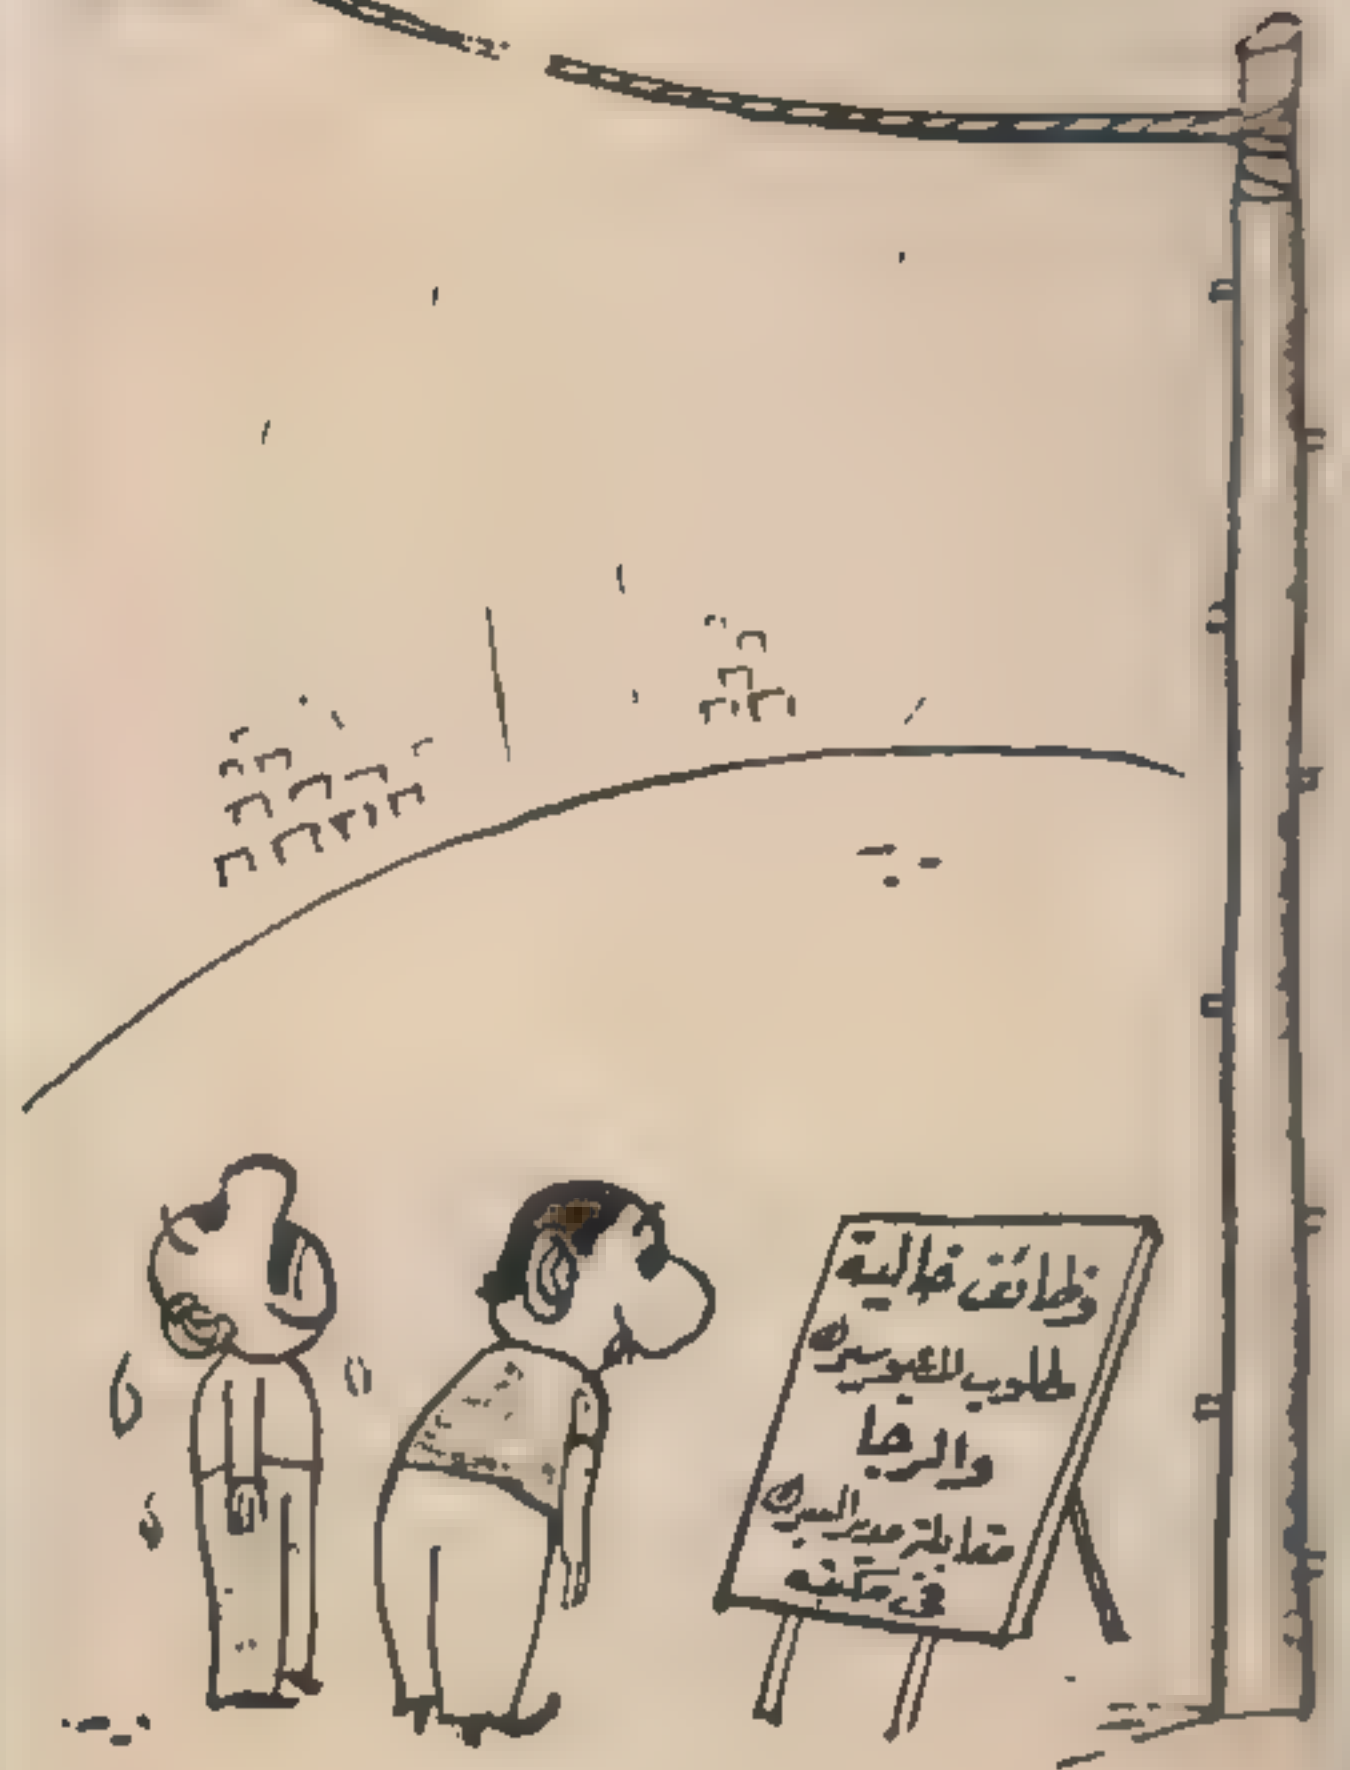 وظائف خالية
مطلوب للسيرك
والرجا
مقابلة مدير السيرك
فى مكتبه